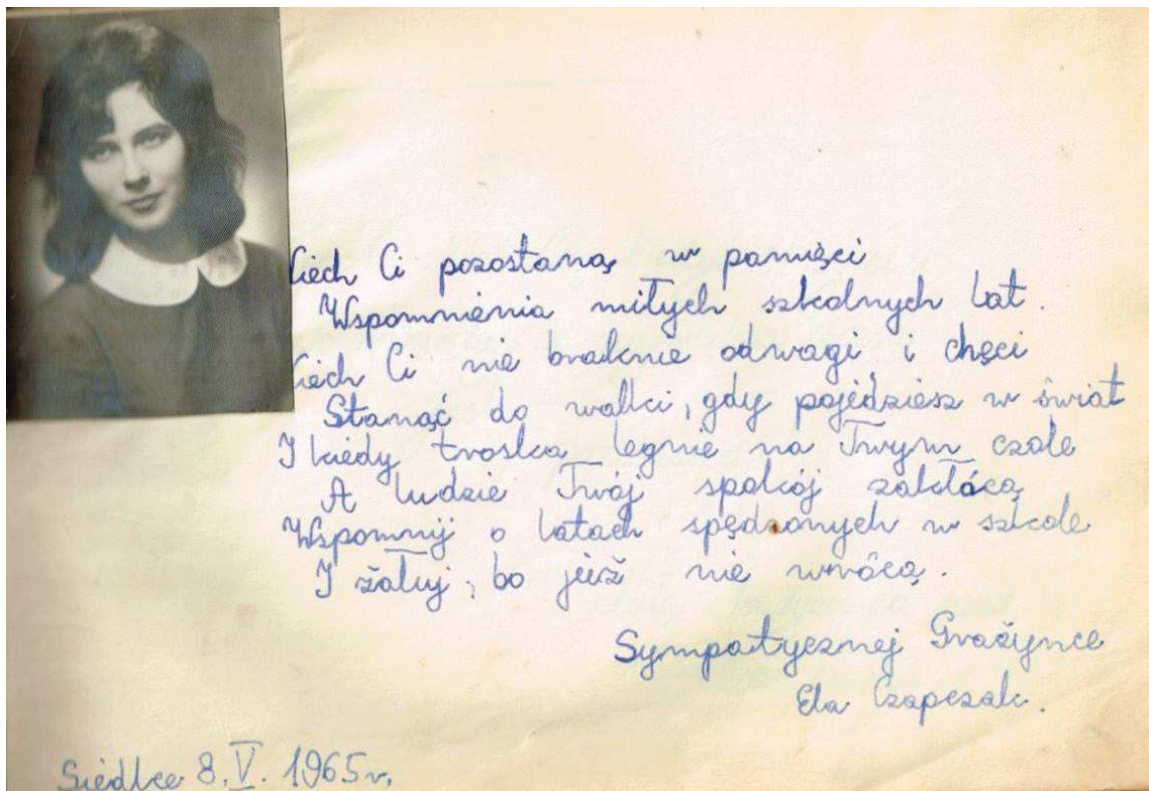 Niech Ci pozostaną w pamięci
Wspomnienia miłych szkolnych lat.
Niech Ci nie braknie odwagi i chęci
Stanąć do walki, gdy pojedziesz w świat
I kiedy troska legnie na Twym czole
A ludzie Twój spokój zakłócą
Wspomnij o latach spędzonych w szkole
I żałuj, bo już nie wrócą.
Sympatycznej Grażynce
Ela Czapczak.
Siedlce 8.V. 1965r.